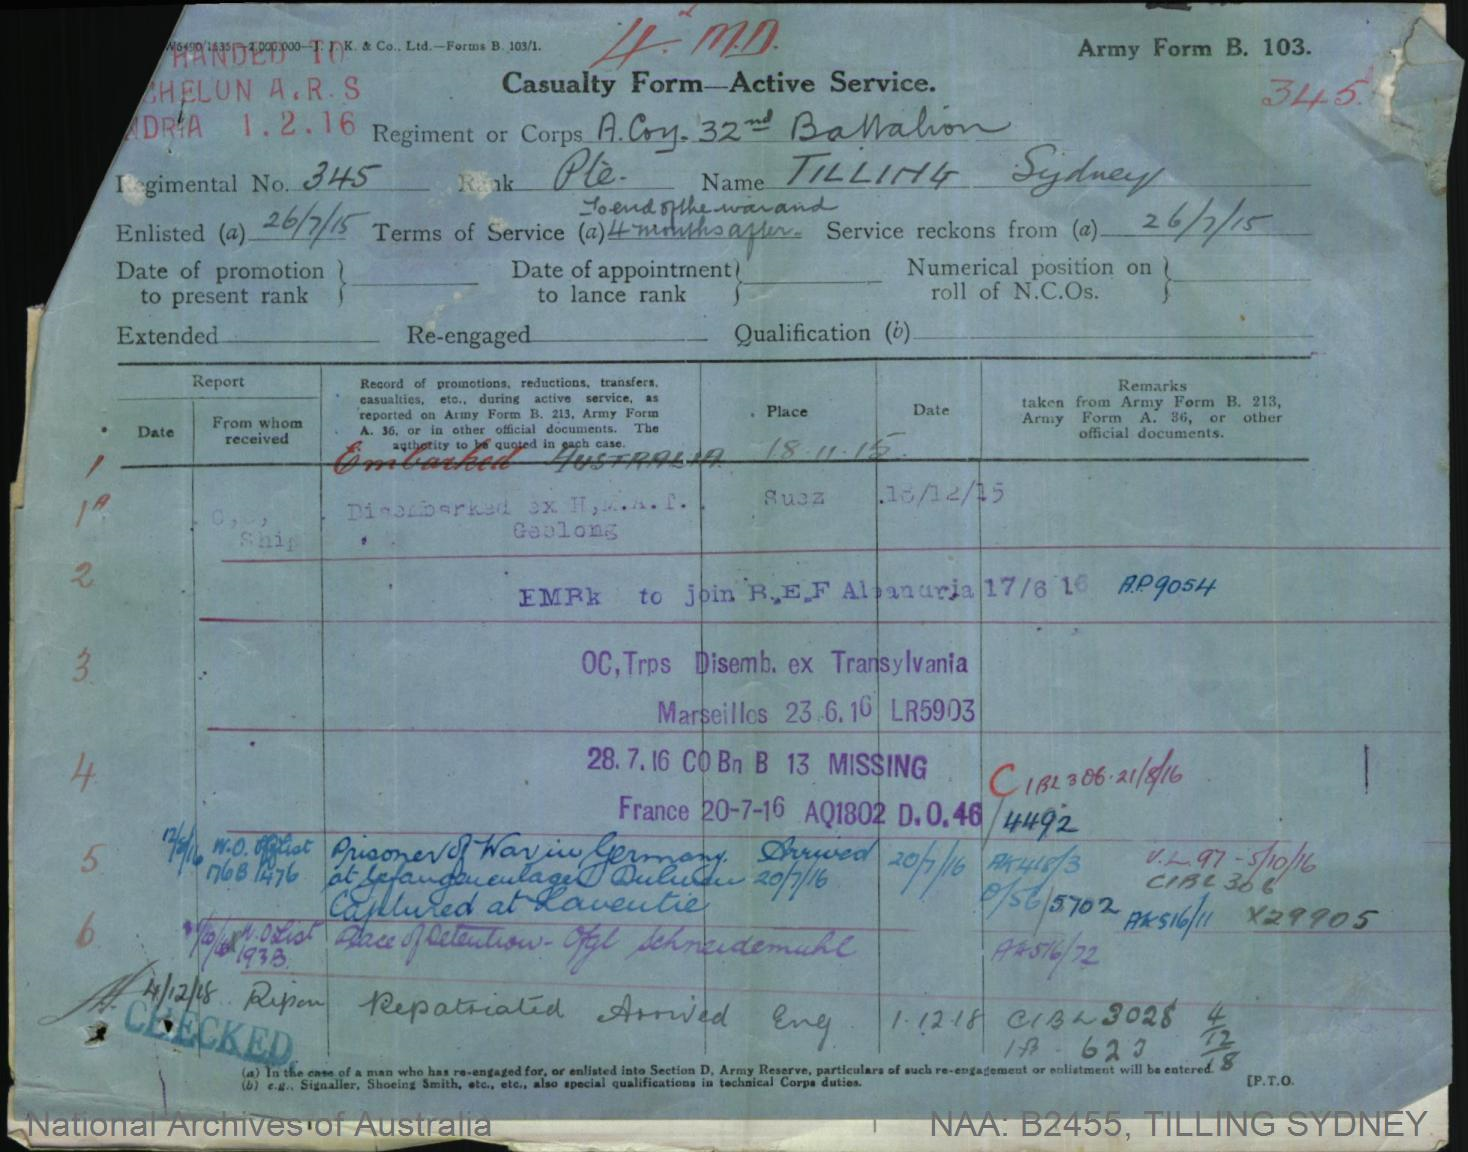 W6490/1635—2,000,000—J. J. K. & Co., Ltd.—Forms B. 103/1.
4th M.D.
Army Form B. 103.
HANDED TO
CHELON A.R.S
NDRIA 1.2.16
Casualty Form—Active Service.
345
Regiment or Corps A. Coy. 32nd Battalion
Regimental No. 345 Rank Pte. Name TILLING Sydney
To end of the war and
Enlisted (a) 26/7/15 Terms of Service (a) 4 months after. Service reckons from (a) 26/7/15
Date of promotion to present rank
Date of appointment to lance rank
Numerical position on roll of N.C.Os.
Extended Re-engaged Qualification (b)
Report
Date
From whom received
Record of promotions, reductions, transfers, casualties, etc., during active service, as reported on Army Form B. 213, Army Form A. 36, or in other official documents. The authority to be quoted in each case.
Place
Date
Remarks
taken from Army Form B. 213, Army Form A. 36, or other official documents.
1 Embarked AUSTRALIA 18.11.15
1A Ship Disembarked ex H.M.A.T. Geelong Suez 18/12/15
2 EMBk to join B.E.F Alexandria 17/6 16 A.P 9054
3 OC, Trps Disemb. ex Transylvania
Marseilles 23.6.16 LR5903
4 28.7.16 CO Bn B 13 MISSING C1BL 306. 21/8/16
France 20-7-16 AQ1802 D.O.46 /4492
5 W.O. List Prisoner of War in Germany. Arrived 20/7/16 AK418/3 V.L. 97 - 5/10/16
at Gefangenenlager Dulmen 20/7/16 C1BL 306
Captured at Laventie 0/56 /5702 AK516/11 X29905
6 W.O List 193B Place of Detention - Ofgl Schneidemuhl AK516/72
4/12/18 Ripon Repatriated Arrived Eng 1.12.18 C1BL 3028 4/12/18
CHECKED
623
(a) In the case of a man who has re-engaged for, or enlisted into Section D, Army Reserve, particulars of such re-engagement or enlistment will be entered.
(b) e.g., Signaller, Shoeing Smith, etc., etc., also special qualifications in technical Corps duties.
[P.T.O.
National Archives of Australia
NAA: B2455, TILLING SYDNEY